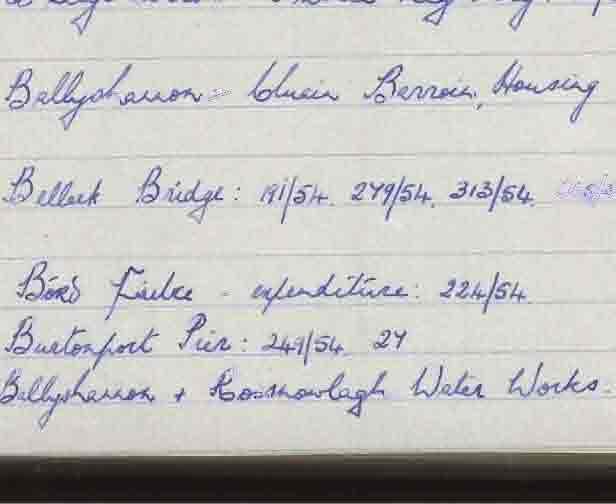 Ballyshannon - Cluain Barron, Housing
Belleek Bridge: 191/54. 279/54. 313/54.
Bórd Fáilte - expenditure: 224/54
Burtonport Pier: 249/54. 27
Ballyshannon + Rossnowlagh Water Works